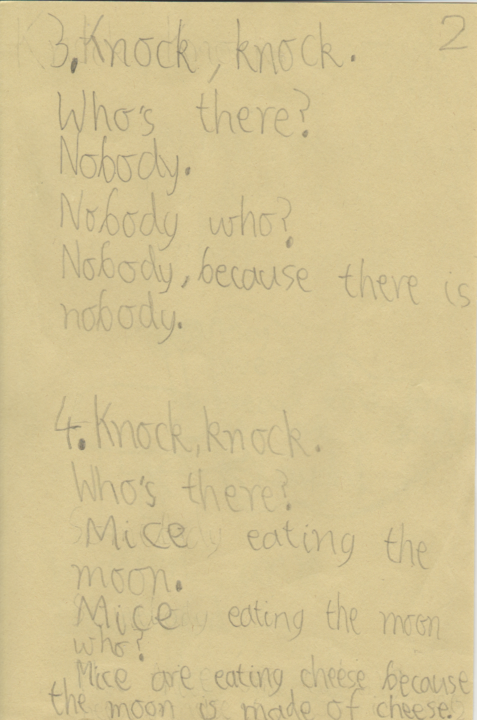 2
3. Knock, knock.
Who's there?
Nobody.
Nobody who?
Nobody, because there is
nobody.
4. Knock, knock.
Who's there?
Mice eating the
moon.
Mice eating the moon
who?
Mice are eating cheese because
the moon is made of cheese.